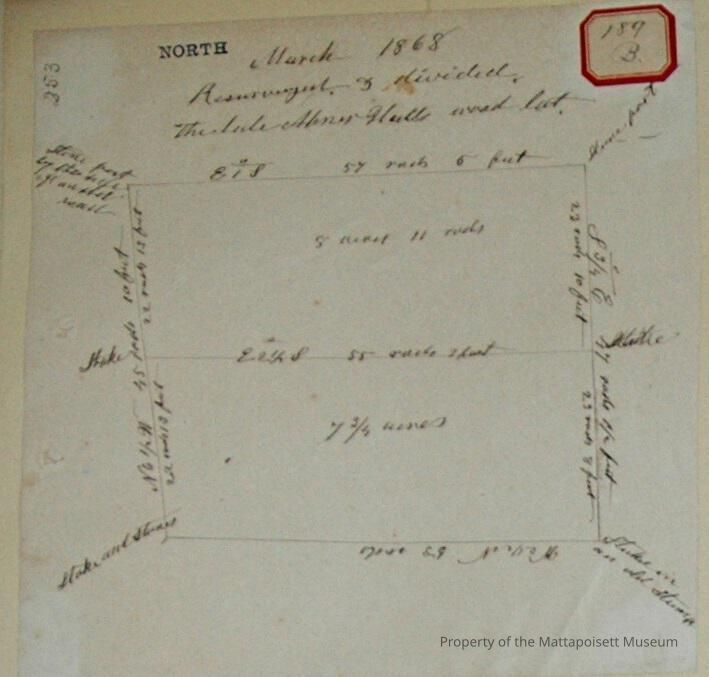 353
NORTH
189
B.
March 1868
Resurveyed & divided.
The late Abner Halls wood lot.
Stone post
by the side
of an old
road
Stone post
E 1° S 57 rods 6 feet
8 acres 11 rods
22 rods 12 feet
45 rods 10 feet
23 rods 10 feet
S 3/4° E
Stake
E 2 1/2° S 55 rods 2 feet
Stake
7 3/4 acres
22 rods
47 rods
23 rods 8 feet
Stake and Stones
53 rods
Stake in
an old Stump
Property of the Mattapoisett Museum